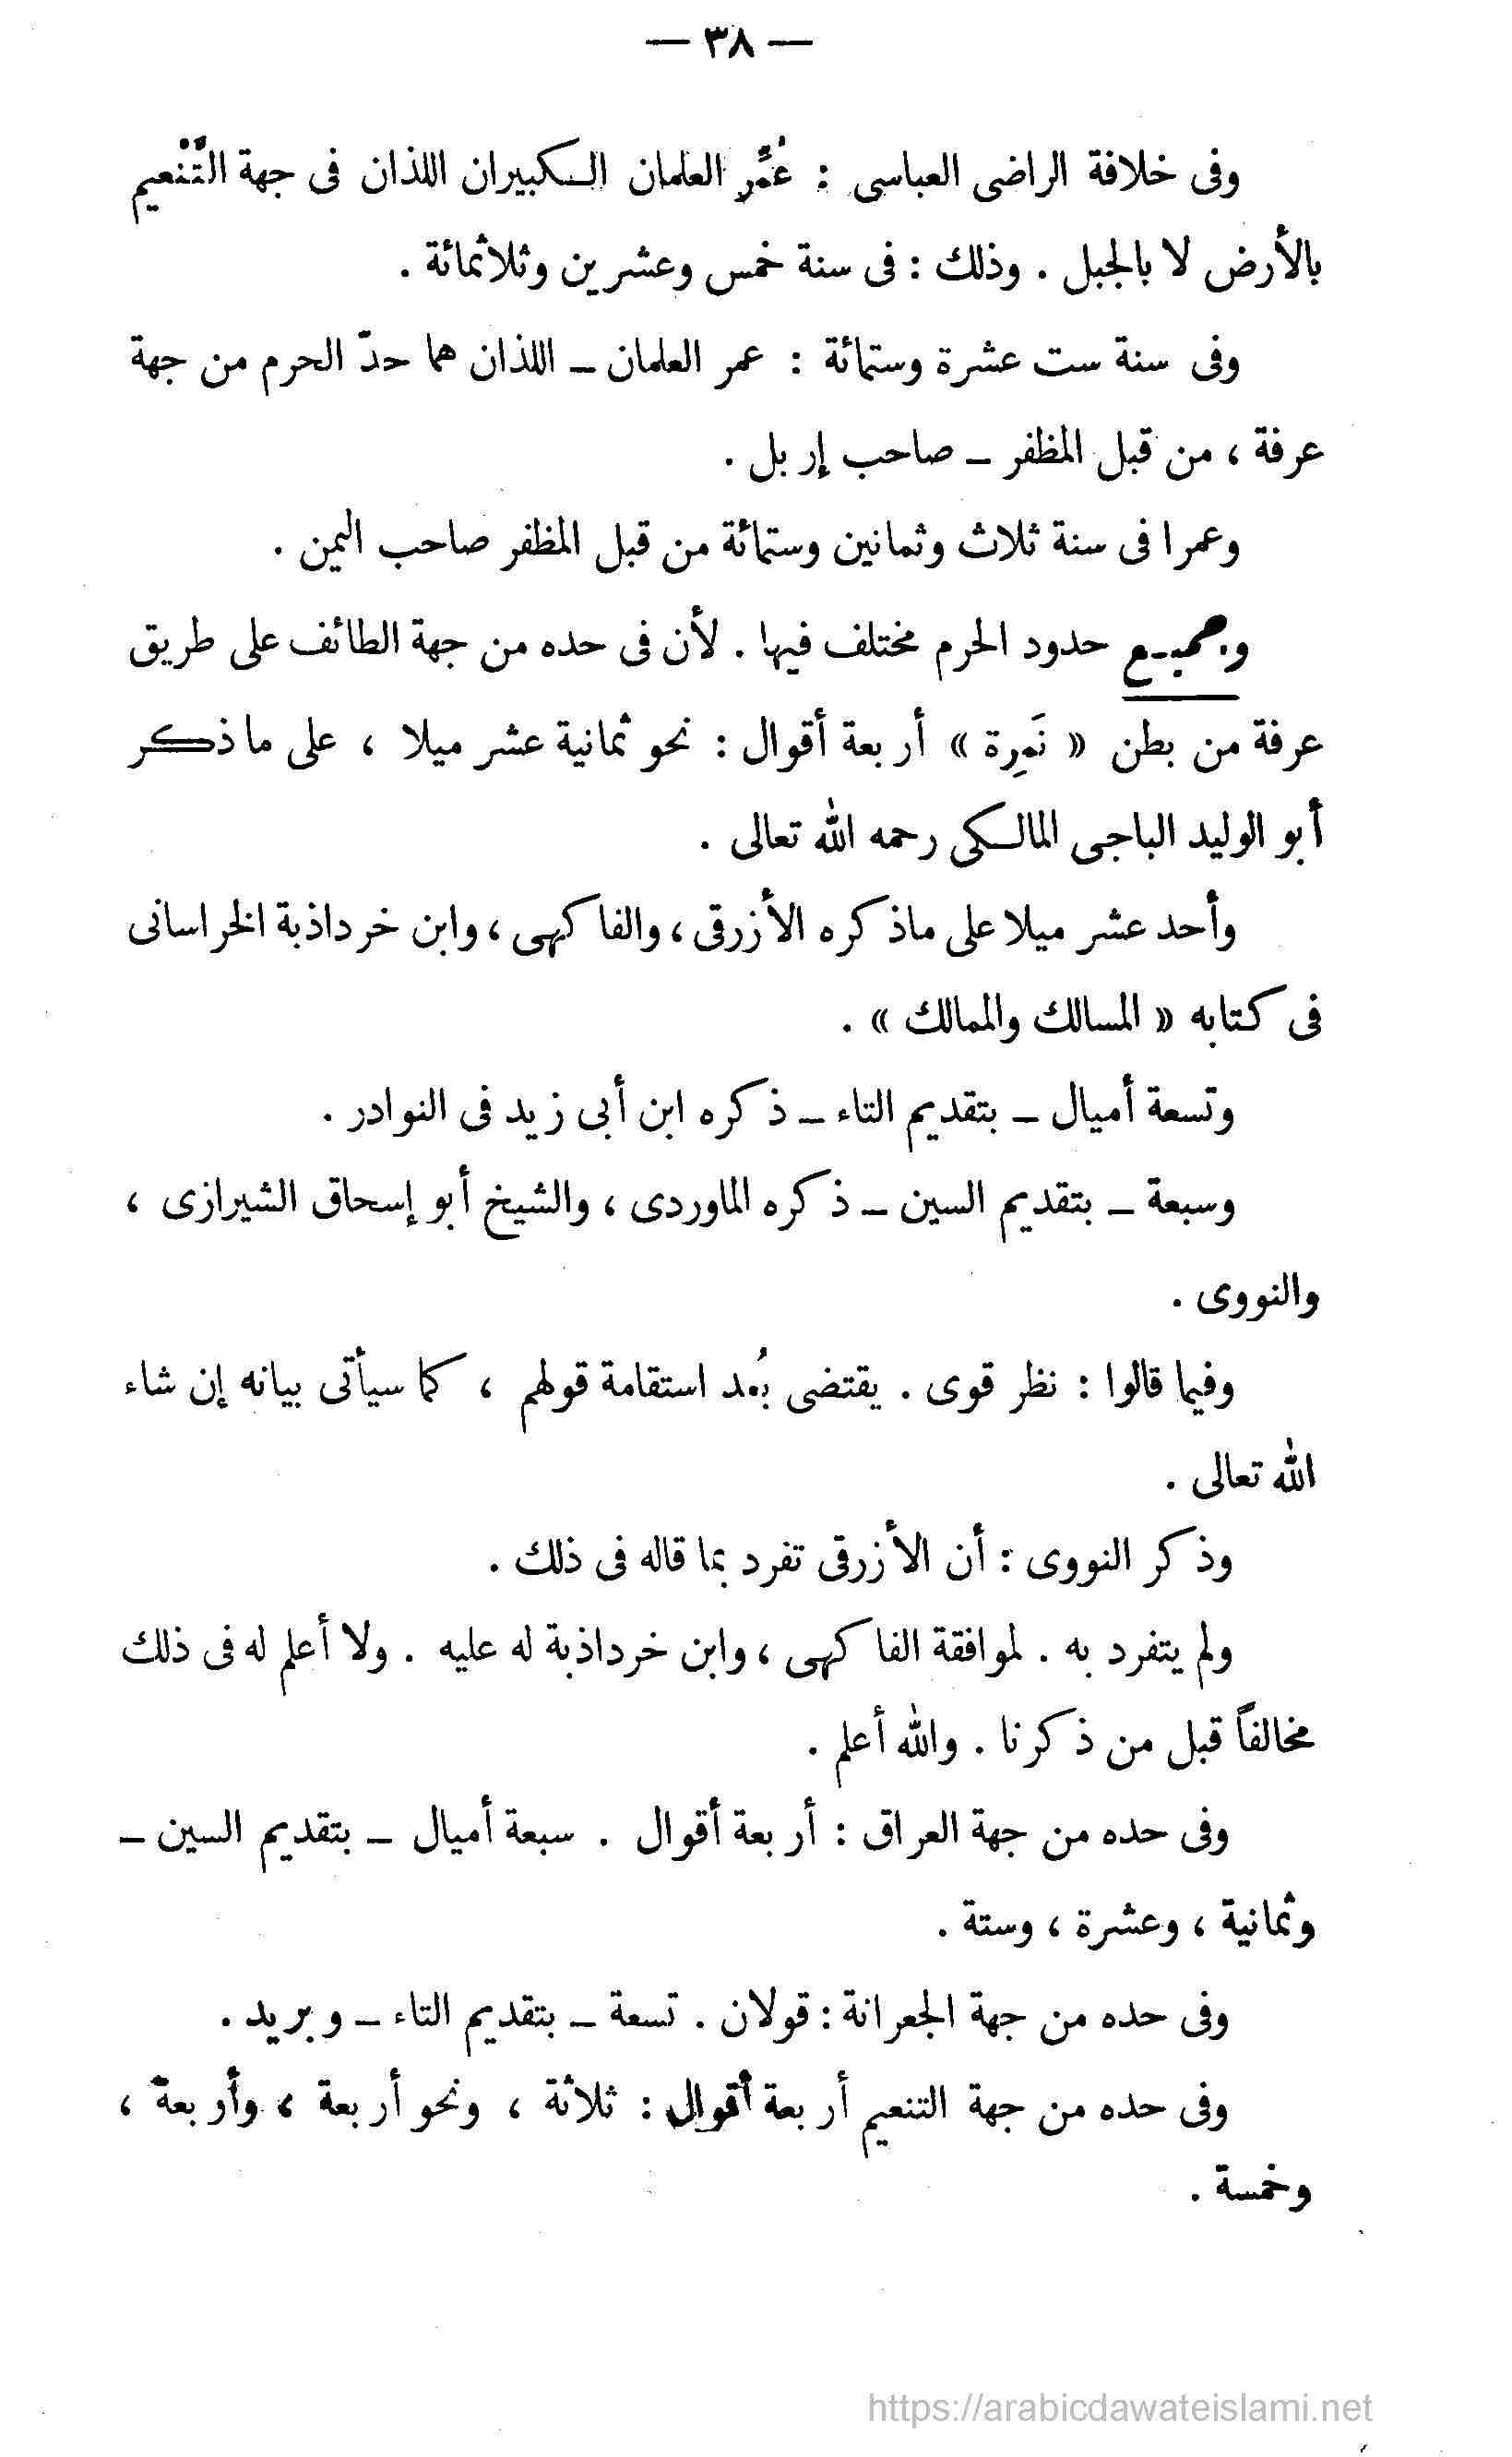 — ٣٨ —
وفى خلافة الراضى العباسى : عُمِّر العلمان الكبيران اللذان فى جهة التَّنْعيم
بالأرض لا بالجبل . وذلك : فى سنة خمس وعشرين وثلاثمائة .
وفى سنة ست عشرة وستمائة : عمر العلمان – اللذان هما حدّ الحرم من جهة
عرفة ، من قبل المظفر – صاحب إربل .
وعمرا فى سنة ثلاث وثمانين وستمائة من قبل المظفر صاحب اليمن .
وجميع حدود الحرم مختلف فيها . لأن فى حده من جهة الطائف على طريق
عرفة من بطن « نَمِرة » أربعة أقوال : نحو ثمانية عشر ميلا ، على ماذكر
أبو الوليد الباجى المالكى رحمه الله تعالى .
وأحد عشر ميلا على ماذكره الأزرقى ، والفاكهى ، وابن خرداذبة الخراسانى
فى كتابه « المسالك والممالك » .
وتسعة أميال – بتقديم التاء – ذكره ابن أبى زيد فى النوادر .
وسبعة – بتقديم السين – ذكره الماوردى ، والشيخ أبو إسحاق الشيرازى ،
والنووى .
وفيما قالوا : نظر قوى . يقتضى بُعد استقامة قولهم ، كما سيأتى بيانه إن شاء
الله تعالى .
وذكر النووى : أن الأزرقى تفرد بما قاله فى ذلك .
ولم يتفرد به . لموافقة الفاكهى ، وابن خرداذبة له عليه . ولا أعلم له فى ذلك
مخالفاً قبل من ذكرنا . والله أعلم .
وفى حده من جهة العراق : أربعة أقوال . سبعة أميال – بتقديم السين –
وثمانية ، وعشرة ، وستة .
وفى حده من جهة الجعرانة : قولان . تسعة – بتقديم التاء – وبريد .
وفى حده من جهة التنعيم أربعة أقوال : ثلاثة ، ونحو أربعة ، وأربعة ،
وخمسة .
https://arabicdawateislami.net